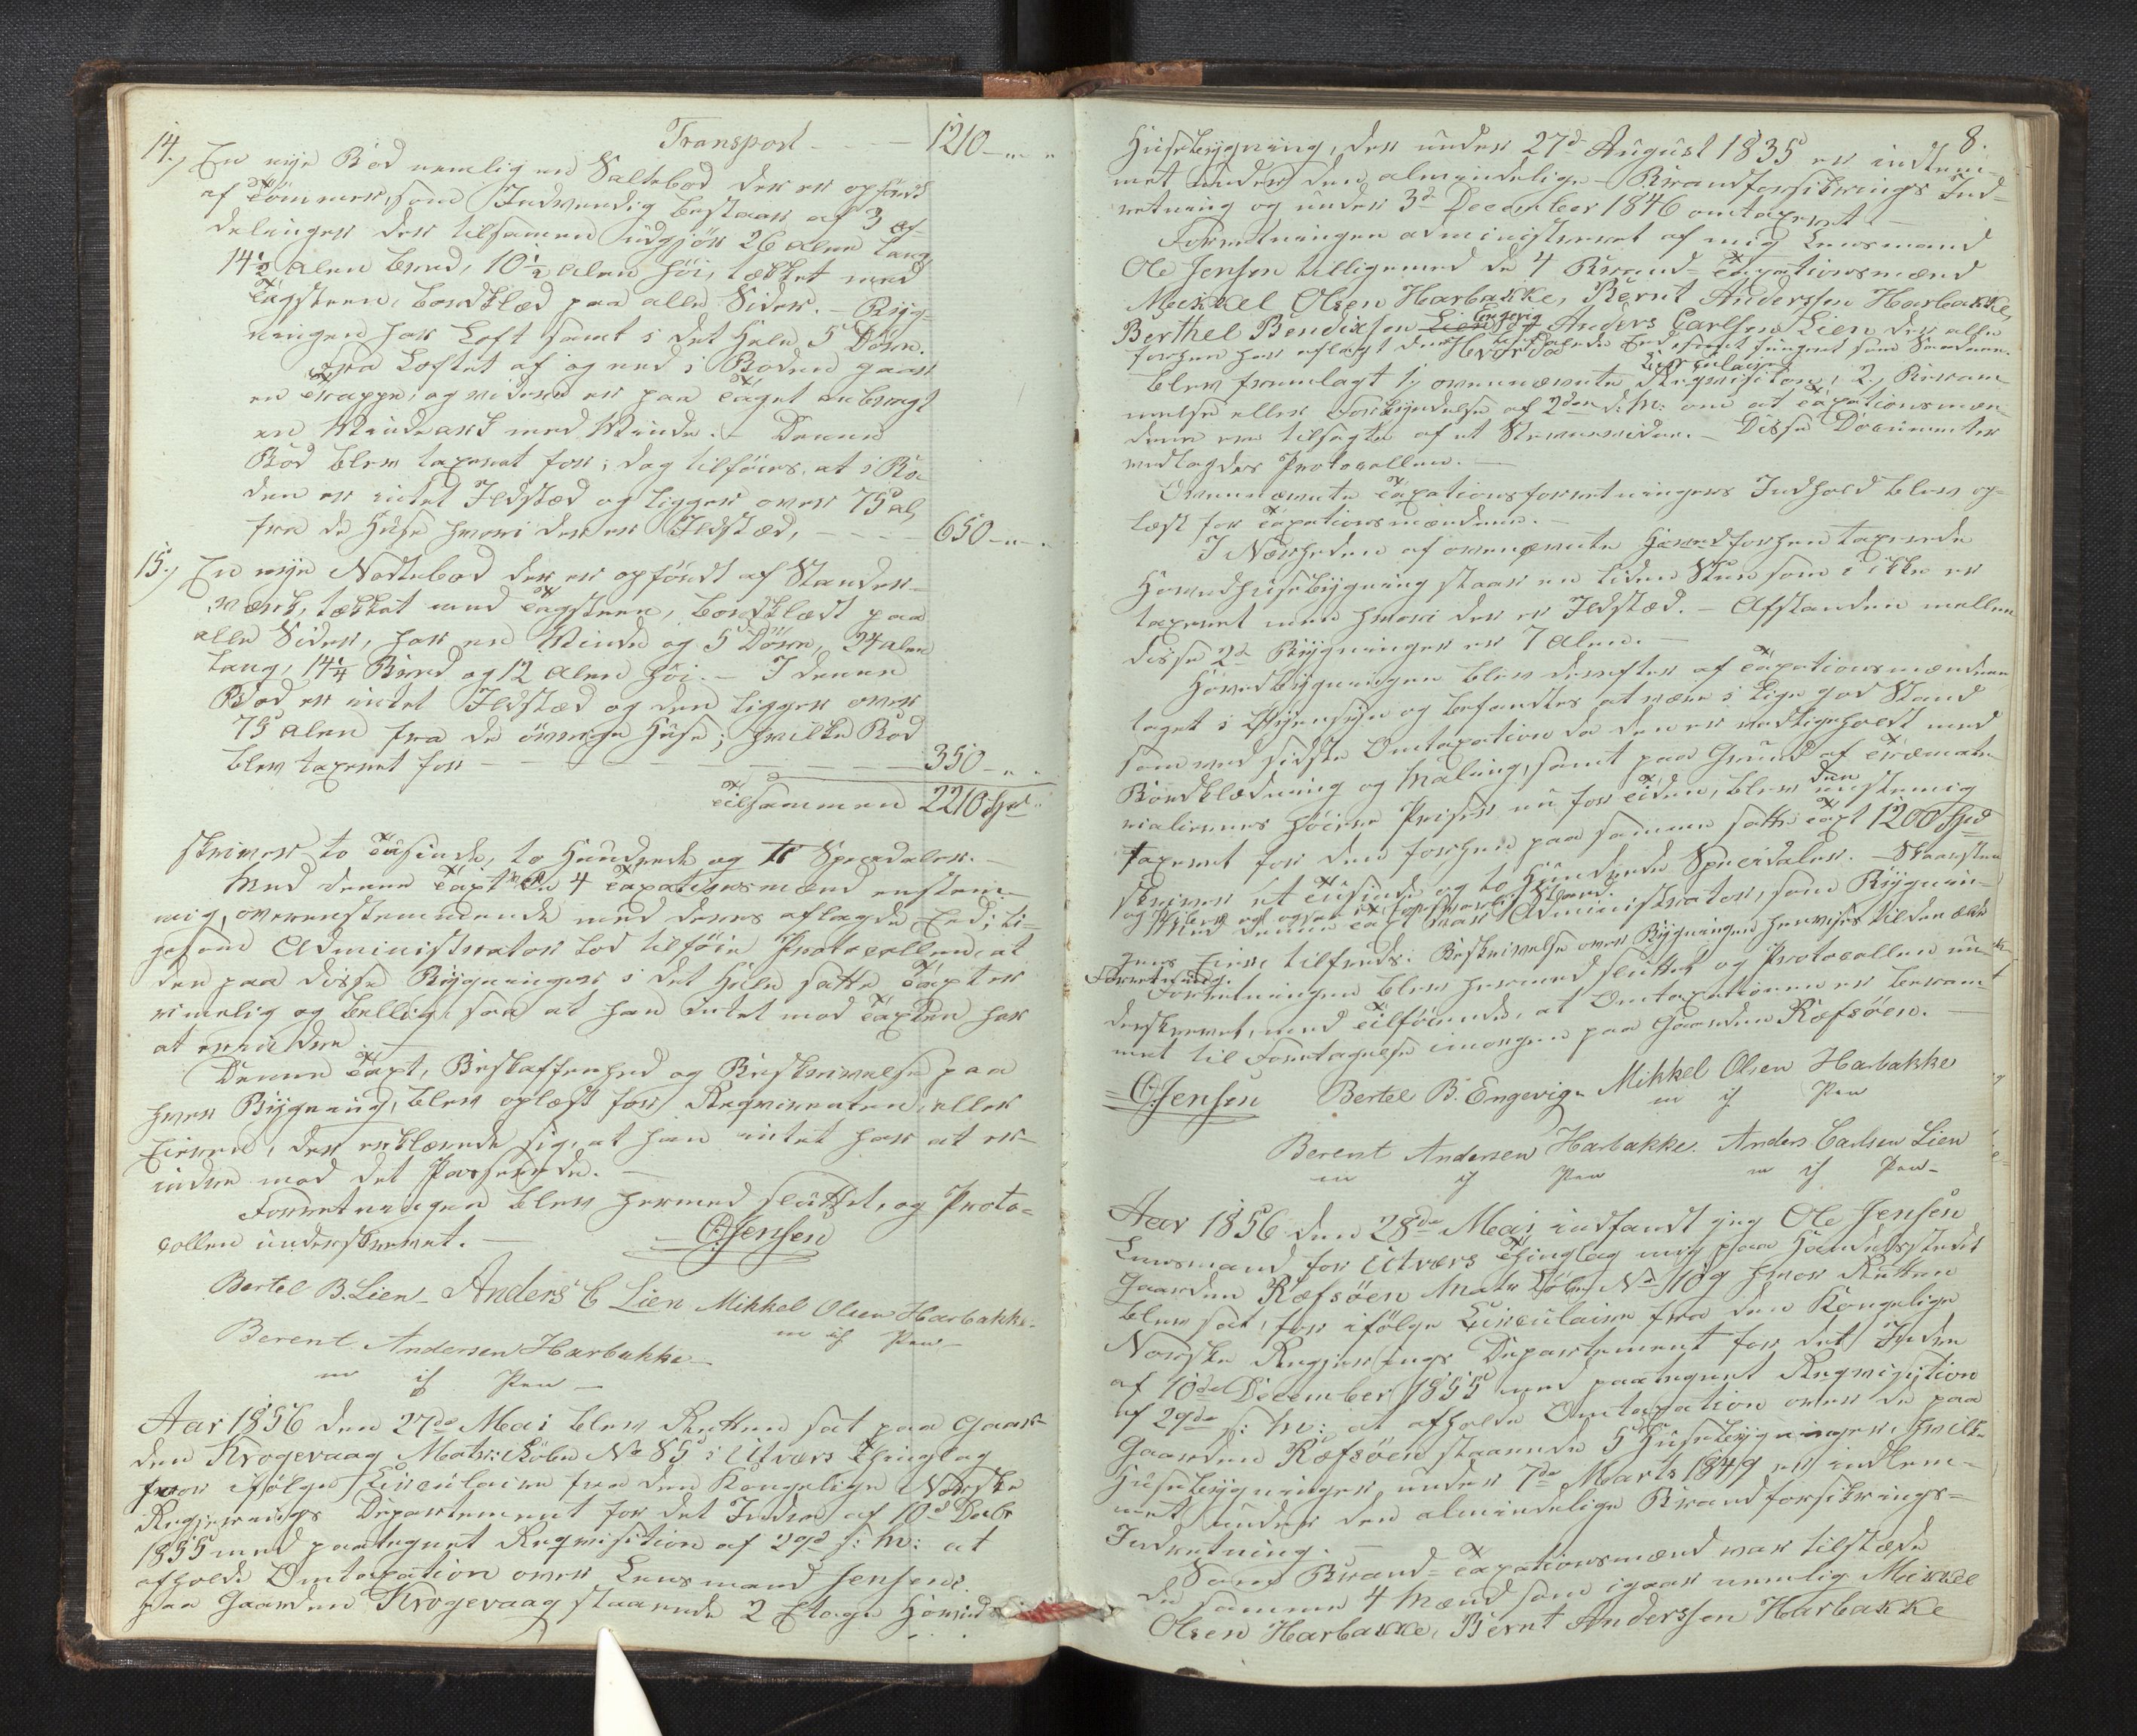 Transport - - - - 1210 - " "
14.) En nye Bod nemlig en Saltebod der er opfördt
af Tömmer, som Indvendig bestaar af 3 Af-
delinger der tilsamen udgjör 26 Alen lang
14½ Alen bred, 10½ Alen höi, tækket med
Tagsteen, bordklæd paa alle Sider. - Byg-
ningen har Loft samt i det Hele 5 Döre.
Fra Loftet af og ned i Boden gaar
en Trappe, og videre er paa Taget anbragt
en Vindeark med Vinde. - Denne
Bod blev taxeret for; dog tilföies, at i Bo-
den er intet Ildsted og ligger over 75 Al,
fra de Huse hvori der er Ildsted, - - - - 650 - " "
15.) En nye Nodtebod der er opfördt af Stander-
værk, tækket med Tagsteen, bordklædt paa
alle Sider, har en Vinde og 5 Döre, 24 Alen
lang, 14¼ Bred og 12 Alen höi. - I denne
Bod er intet Ildsted og den ligger over
75 Alen fra de övrige Huse; hvilke Bod
blev taxeret for - - - - 350 - " "
Tilsammen 2210 Spd "
skriver to Tusinde, to Hundrede og Ti Speciedaler. -
Med denne Taxt er de 4 Taxationsmænd enstem-
mig, overensstemmende med deres aflagde Eed; li-
gesom Administrator lod tilföie Protocollen, at
den paa disse Bygninger i det Hele satte Taxt er
rimelig og billig, saa at han intet mod Taxten har
at erindre. -
Denne Taxt, Beskaffenhed og Beskrivelse paa
hver Bygning, blev oplæst for Reqvirenten, eller
Eieren, der erklærede sig, at han intet har at er-
indre mod det Passerede. -
Forretningen blev hermed sluttet, og Proto-
collen underskrevet. - OJensen
Bertel B. Lien - Anders C Lien Mikkel Olsen Harbakke -
m if Pen -
Berent Andersen Harbakke -
m if Pen -
Aar 1856 den 27de Mai blev Retten sat paa Gaar-
den Krogevaag Matr: Löbe No 85 i Utvær Thinglag
hvor ifölge Circulaire fra den Kongelige Norske
Regjerings Departement for det Indre af 10d Decbr
1855 med paategnet Reqvisition af 29d s: M: at
afholde Omtaxation over Lensmand Jensens
paa Gaarden Krogevaag staaende 2 Etages Hoved
8.
Husebygning, der under 27d August 1835 er indlem-
met under den almindelige Brandforsikrings Ind-
retning og under 3d December 1846 omtaxeret. -
Forretningen administreret af mig Lensmand
Ole Jensen tilligemed de 4 Brand-Taxationsmænd
Meikkel Olsen Harbakke, Bernt Anderssen Harbakke,
Berthel Bendixsen Lien Engevig og Anders Carlsen Lien der alle
forhen har aflagt den befalede Eed samt fungeret som Saadanne.
Blev fremlagt 1, ovennævnte Circulaire Reqvisition, 2, Beram-
melse eller Forkyndelse af 2den d: M: om at Taxationsmæn-
dene ere tilsagte af et Stevnevidne. - Disse Documenter
vedlagdes Protocollen. -
Ovennævnte Taxationsforretningers Indhold blev op-
læst for Taxationsmændene. -
I Nærheden af ovennævnte forhen taxerede
Hovedhusebygning staar en liden Stue som i ikke er
taxeret men hvori der er Ildsted. - Afstanden mellem
disse 2de Bygninger er 7 Alen. -
Hovedbygningen blev derefter af Taxationsmændene
taget i Øiensyn og befandtes at være i lige god Stand
som ved sidste Omtaxation da den er vedligeholdt med
Bordklædning og Maling, samt paa Grund af Træmate-
rialiernes höiere Priser nu for Tiden, blev den enstemig
taxeret for den forhen paa samme satte Taxt 1200 Spd
skriver et Tusinde og to Hundrede Speciedaler. - Skaarsten
og Piber er ogsaa i forsvarlig Stand.
Med denne Taxt var Administrator, som Bygnin-
gens Eier tilfreds. Beskrivelse over Bygningen henvises til den ældre
Forretning.
Forretningen blev hermed sluttet og Protocollen un-
derskrevet, med Tilföiende, at Omtaxationen er beram-
met til Foretagelse imorgen paa Gaarden Ræfsöen. -
OJensen Bertel B. Engevig - Mikkel Olsen Harbakke
m if Pen
Berent Andersen Harbakke. Anders Carlsen Lien
m if Pen m if Pen -
Aar 1856 den 28de Mai indfandt jeg Ole Jensen
Lensmand for Utvær Thinglag mig paa Handelsstedet
Gaarden Ræfsöen Matr Löbe No 109 hvor Retten
blev sat, for ifölge Circulaire fra den Kongelige
Norske Regjerings Departement for det Indre
af 10de December 1855 med paategnet Reqvisition
af 29de s: M: at afholde Omtaxation over de paa
Gaarden Ræfsöen staaende 5 Husebygninger, hvilke
Husebygninger, under 7de Marts 1849 er indlem-
met under den almindelige Brandforsikrings-
Indretning. -
Som Brand-Taxationsmænd var tilstede
de samme 4 Mænd som igaar nemlig Meikkel
Olsen Harbakke, Bernt Anderssen Harbakke